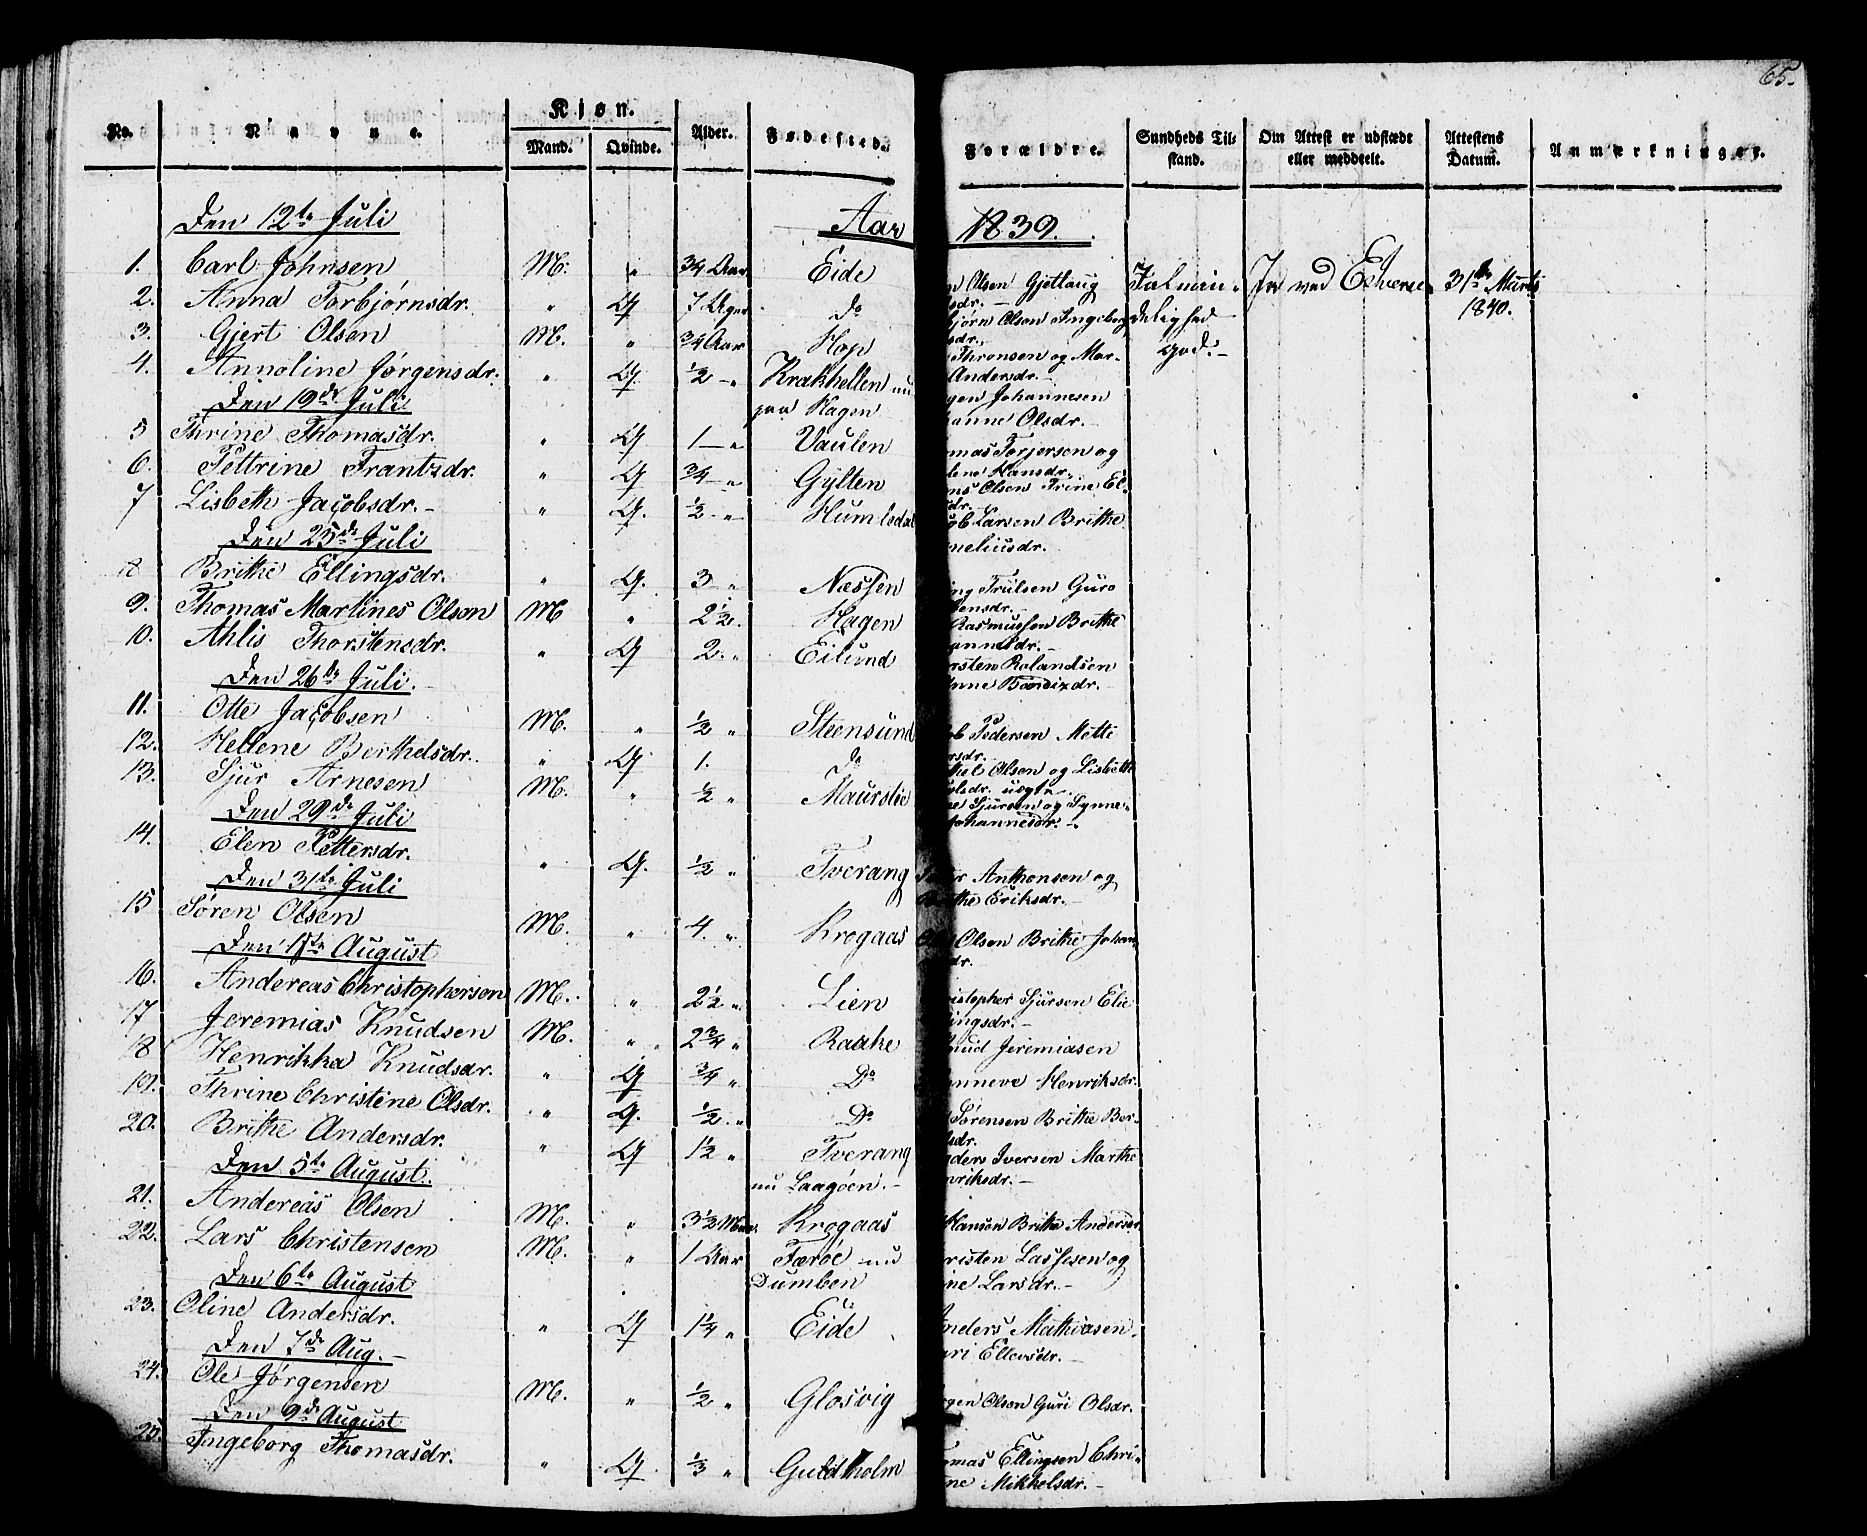 65.
No. Navne. Kjøn. Mand. Qvinde. Alder. Fødested. Forældre. Sundheds Til-stand. Om Attest er udstædt eller meddeelt. Attestens Datum. Anmærkninger.
Den 12te Juli Aar 1839.
1. Carl Johnsen M. " 3/4 Aar Eide
n Olsen Gjetlaug
sdr. -
2. Anna Torbjørnsdr. " Q 7 Uger do
bjørn Olsen Ingeborg
sdr.
3. Gjert Olsen M. " 3/4 Aar Hop
Thronsen og Mar-
Andersdr. -
4. Annoline Jørgensdr. " Q. 1/2 - " Krakhellen nu
paa Hagen
gen Johannesen
anne Olsdr. -
I almin-
delighed
god. -
Ja ved Enhver 31te Marts
1840.
Den 19de Juli
5 Thrine Thomasdr. " Q 1 - " Vaulen
mas Torjersen og
lene Hansdr.
6. Pettrine Frantzdr. " Q 3/4 - " Gylten
ns Olsen Trine El-
dr.
7 Lisbeth Jacobsdr. - " Q. 1/2 - " Humledal
ob Larsen Brithe
neliusdr.
Den 25de Juli
8 Brithe Ellingsdr. " Q. 3 " Nessen
ing Trulsen Guro
ensdr. -
9. Thomas Martines Olsen M " 2 1/2 . Hagen
Rasmussen Brithe
annesdr. -
10. Ahlis Thorstensdr. " Q 2. " Eilund
rsten Rolandsen
nne Bendixdr. -
Den 26de Juli. -
11. Otte Jacobsen M. " 1/2 " Steensund
ob Pedersen Mette
rsdr.
12. Hellene Berthelsdr. " Q 1. do
thel Olsen og Lisbeth
olsdr. uægte
13. Sjur Arnesen M. " 1/2 " Maurslie
ne Sjursen og Synne-
Johannesdr. -
Den 29de Juli
14. Elen Pettersdr. " Q. 1/2 " Tverang
r Anthonsen og
the Eriksdr. -
Den 31te Juli
15 Søren Olsen M. " 4. " Krogaas
Olsen Brithe Johan-
dr.
Den 1ste August
16. Andereas Christophersen M. " 2 1/2 " Lien
ristopher Sjursen Elie
lingsdr. -
17 Jeremias Knudsen M. " 2 3/4 " Raake
nud Jeremiasen
18 Henrikka Knudsdr. " Q 3/4 " Do
anneve Henriksdr.
19. Thrine Christine Olsdr. " Q. 1/2 " Do
Sørensen Brithe Ber-
lsdr.
20. Brithe Andersdr. " Q 1 1/2 " Tverang
nu Laagøen. -
nders Iversen Marthe
nriksdr. -
Den 5te August.
21. Andereas Olsen M. " 3 1/2 Krogaas
Hansen Brithe Andersdr.
22. Lars Christensen M. " 1 Aar Færøe nu
Dumben
risten Lassesen og
ine Larsdr. -
Den 6te August
23. Oline Andersdr. " Q 1 1/4 " Eide
Anders Mathiasen
ari Ellevsdr. -
Den 7de Aug. -
24. Ole Jørgensen M. " 1/2 " Glosvig
rgen Olsen Guri Olsdr.
Den 9de August
25. Ingeborg Thomasdr. " Q 1/3 " Guldholm
omas Ellingsen Chri-
ne Mikkelsdr. -